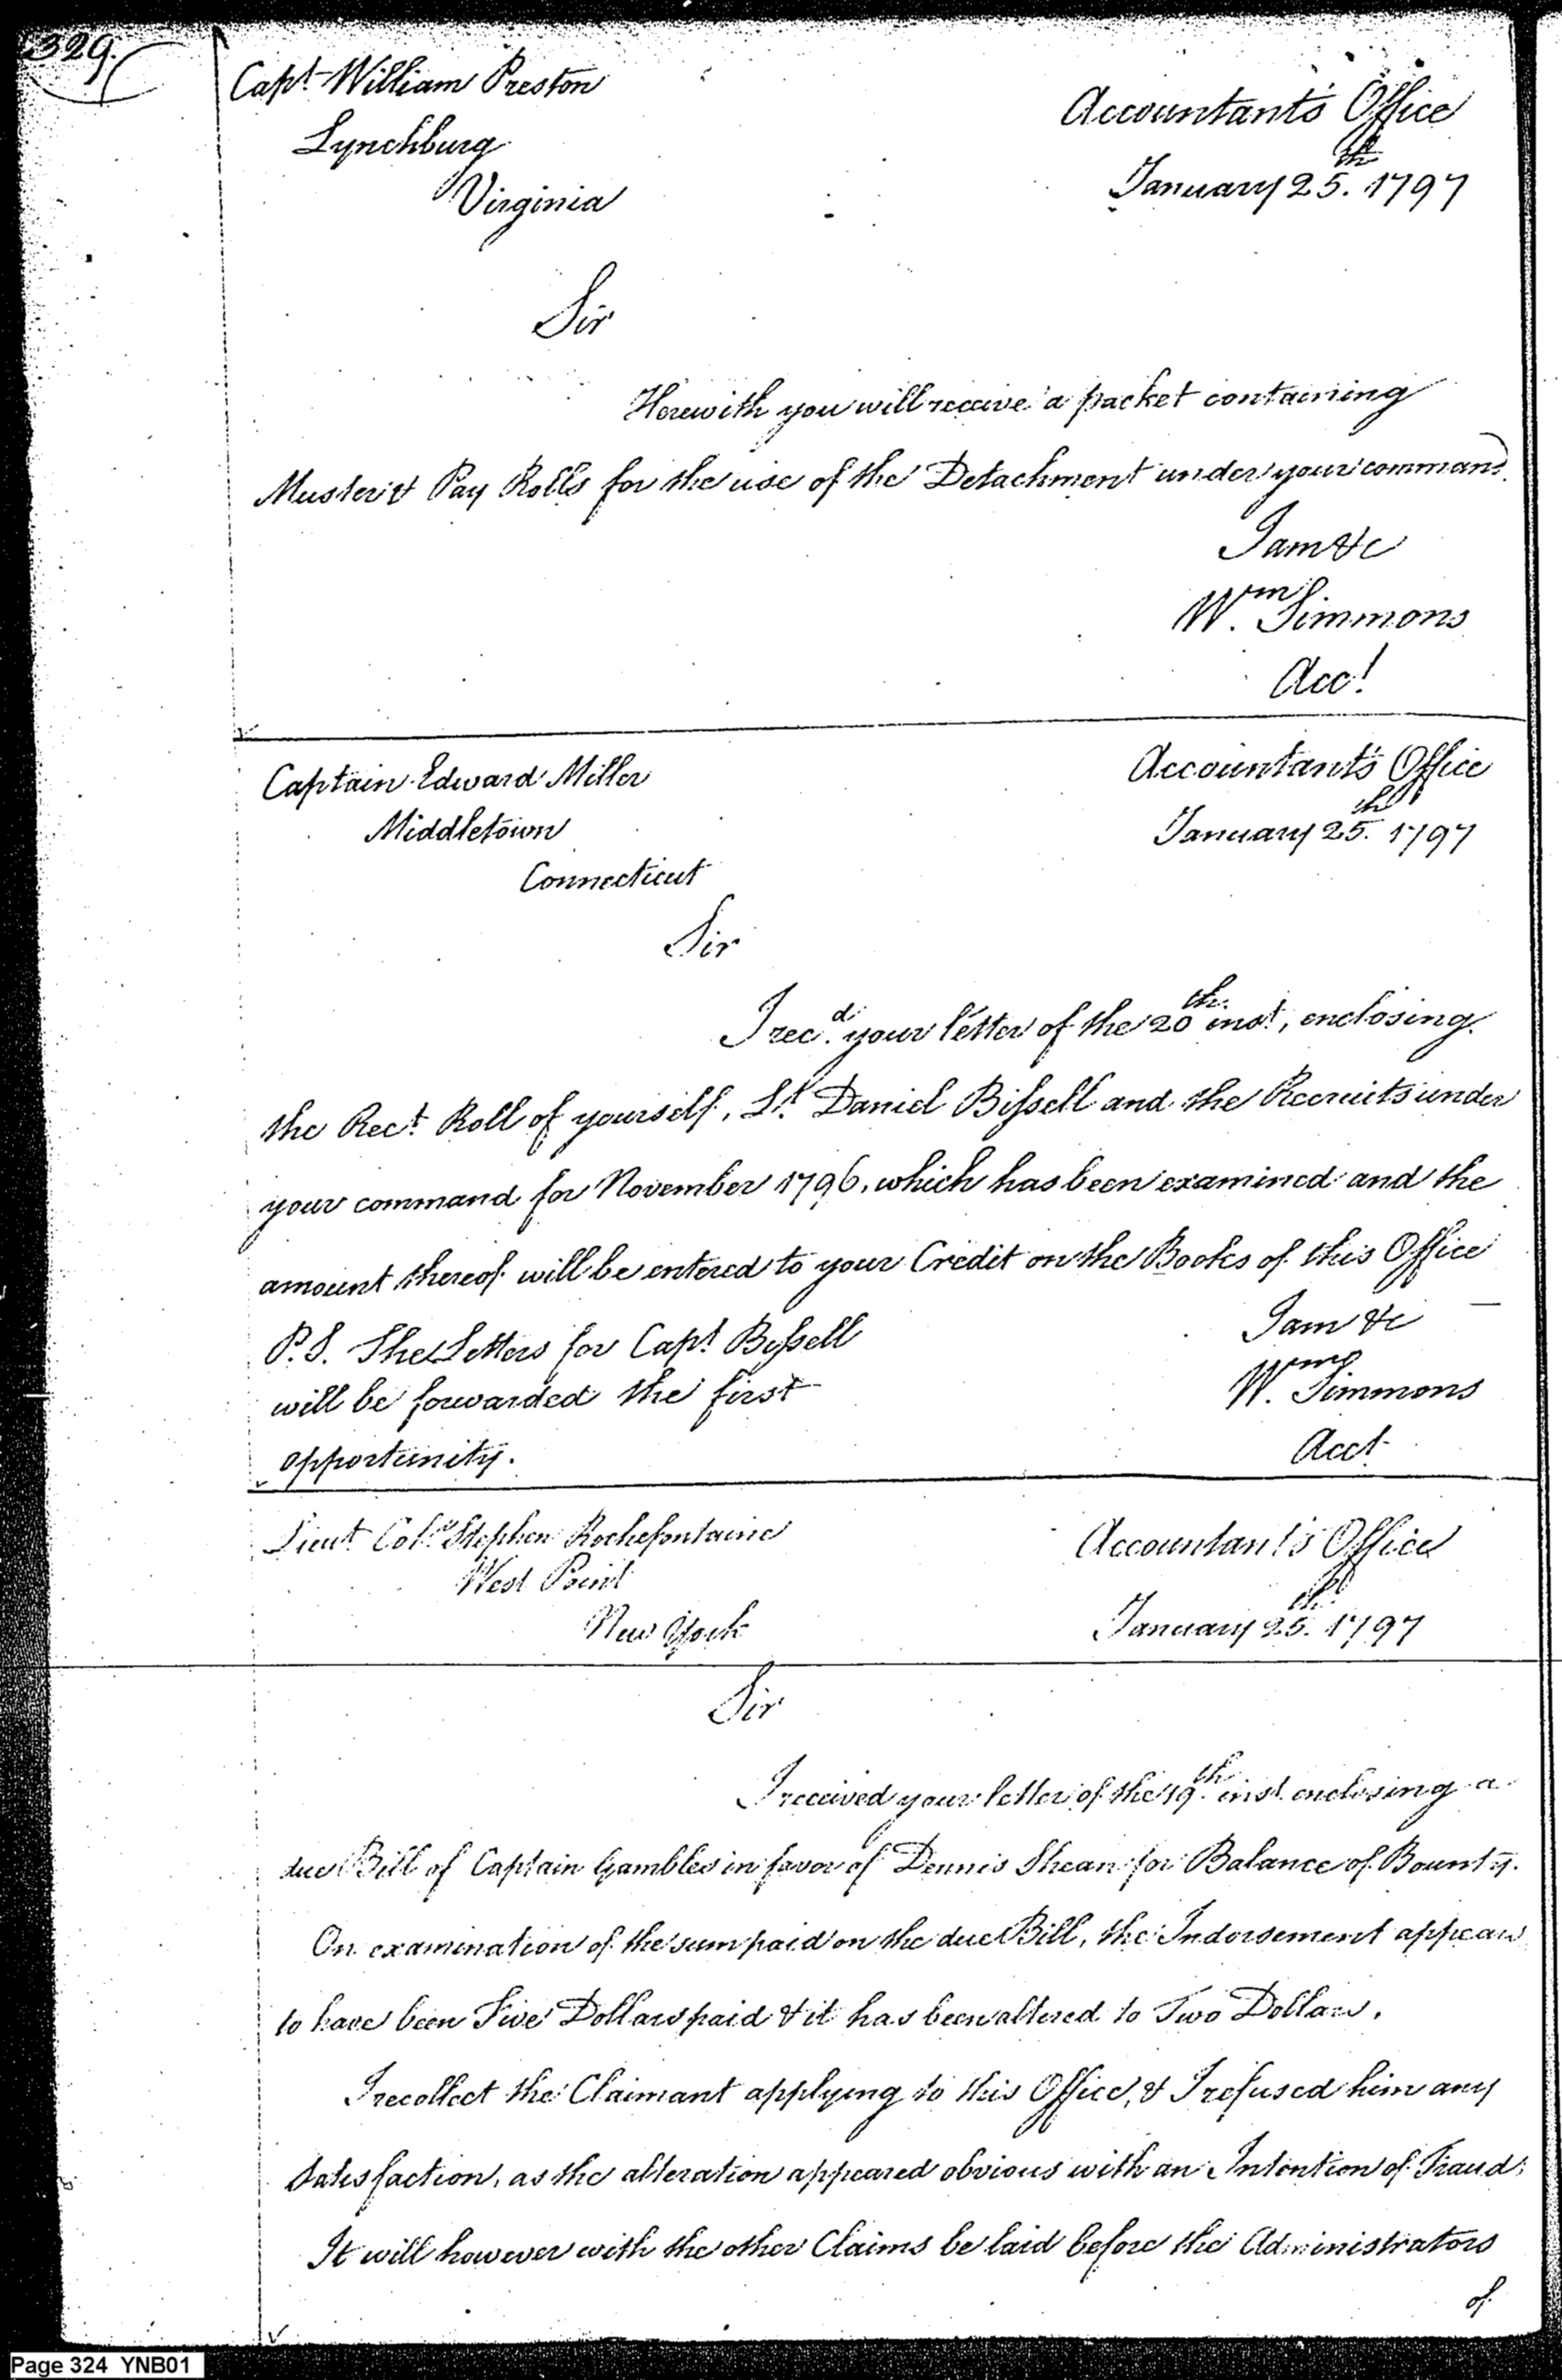 329.
Capt William Preston
Lynchburg
Virginia
Accountant's Office
January 25th. 1797
Sir
Herewith you will receive a packet containing
Muster & Pay Rolls for the use of the Detachment under your command.
I am &c
Wm. Simmons
Acct.
Captain Edward Miller
Middletown
Connecticut
Accountant's Office
January 25th. 1797
Sir
I recd. your letter of the 20th. inst, enclosing
the Rect. Roll of yourself, Lt. Daniel Bissell and the Recruits under
your command for November 1796, which has been examined and the
amount thereof will be entered to your Credit on the Books of this Office
I am &c
P.S. The Letters for Capt. Bissell
will be forwarded the first
opportunity.
Wm. Simmons
Acct.
Lieut Colo. Stephen Rochefontaine
West Point
New York
Accountant's Office
January 25th. 1797
Sir
I received your letter of the 19th. inst. enclosing a
due Bill of Captain Gambles in favor of Dennis Shean for Balance of Bounty.
On examination of the sum paid on the due Bill, the Indorsement appears
to have been Five Dollars paid & it has been altered to Two Dollars.
I recollect the Claimant applying to this Office, & I refused him any
satisfaction, as the alteration appeared obvious with an Intention of Fraud.
It will however with the other Claims be laid before the Administrators
of
Page 324 YNB01